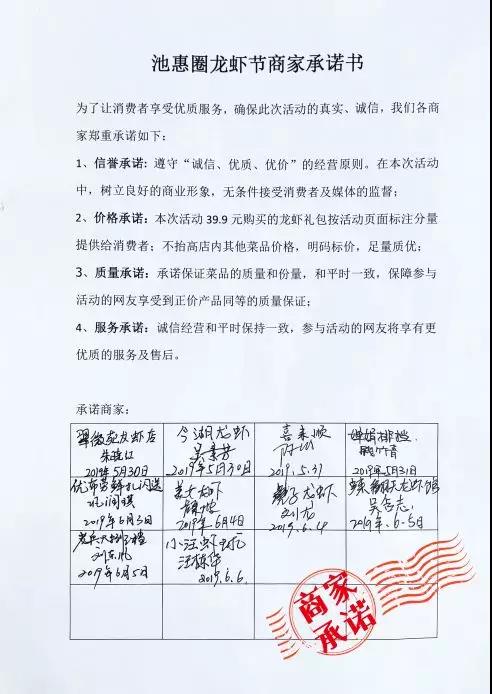 池惠圈龙虾节商家承诺书
为了让消费者享受优质服务，确保此次活动的真实、诚信，我们各商
家郑重承诺如下：
1、信誉承诺：遵守“诚信、优质、优价”的经营原则。在本次活动
中，树立良好的商业形象，无条件接受消费者及媒体的监督；
2、价格承诺：本次活动 39.9 元购买的龙虾礼包按活动页面标注分量
提供给消费者；不抬高店内其他菜品价格，明码标价，足量质优；
3、质量承诺：承诺保证菜品的质量和份量，和平时一致，保障参与
活动的网友享受到正价产品同等的质量保证；
4、服务承诺：诚信经营和平时保持一致，参与活动的网友将享有更
优质的服务及售后。
承诺商家：
龙虾店
2019年5月30日
今湖龙虾
吴景芳
2019年5月30日
喜来顺
2019.5.31
排档
2019年5月31日
2019年6月3日
龙虾
2019年6月4日
龙虾
刘龙
2019.6.4
龙虾馆
吴念志
2019年.6-5日
老兵大排档
刘东
2019年6月5日
小汪虾
2019.6.6
商家
承诺